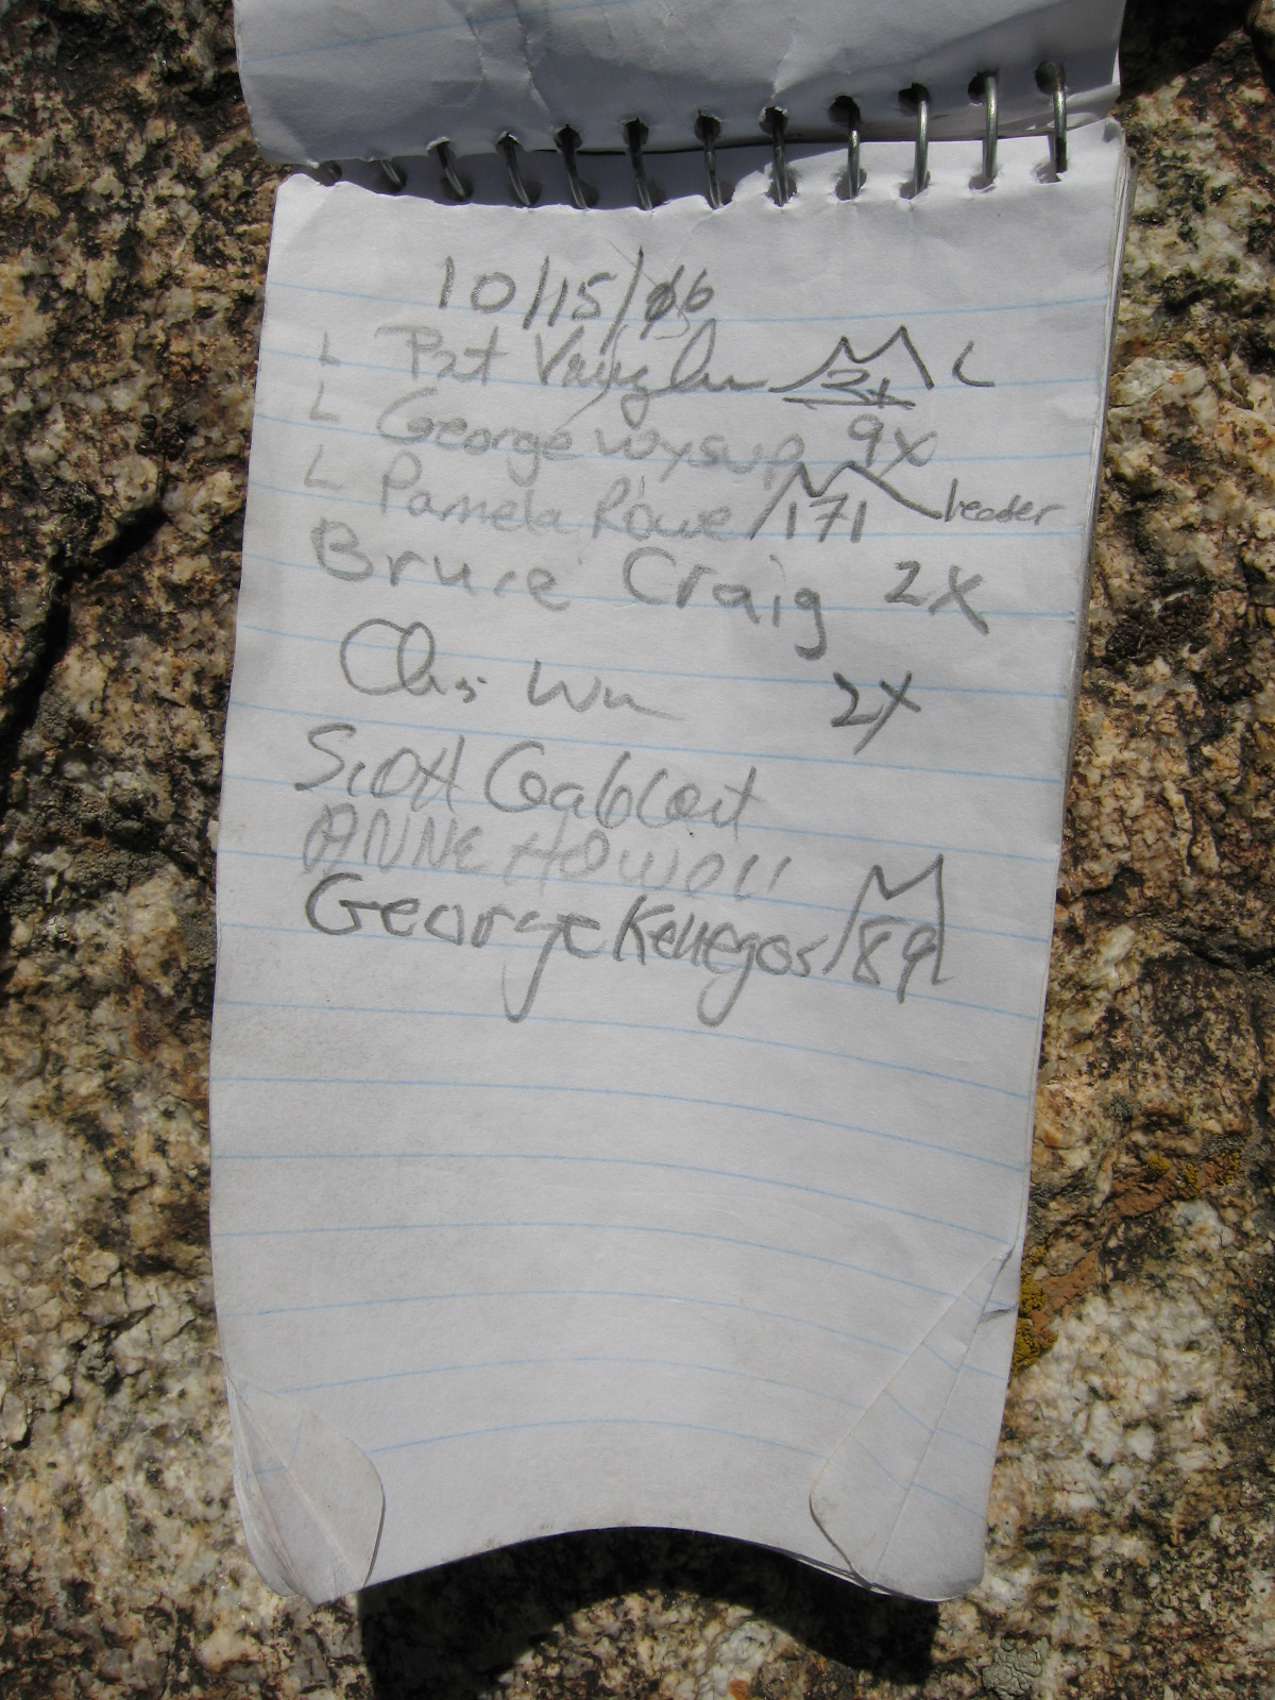 10/15/06
L Pat Vaughn 2x L
L George Wysup 9X
L Pamela Rowe 171 leader
Bruce Craig 2X
Chris Wu 2X
Scott
ANNE HOWell
George 89